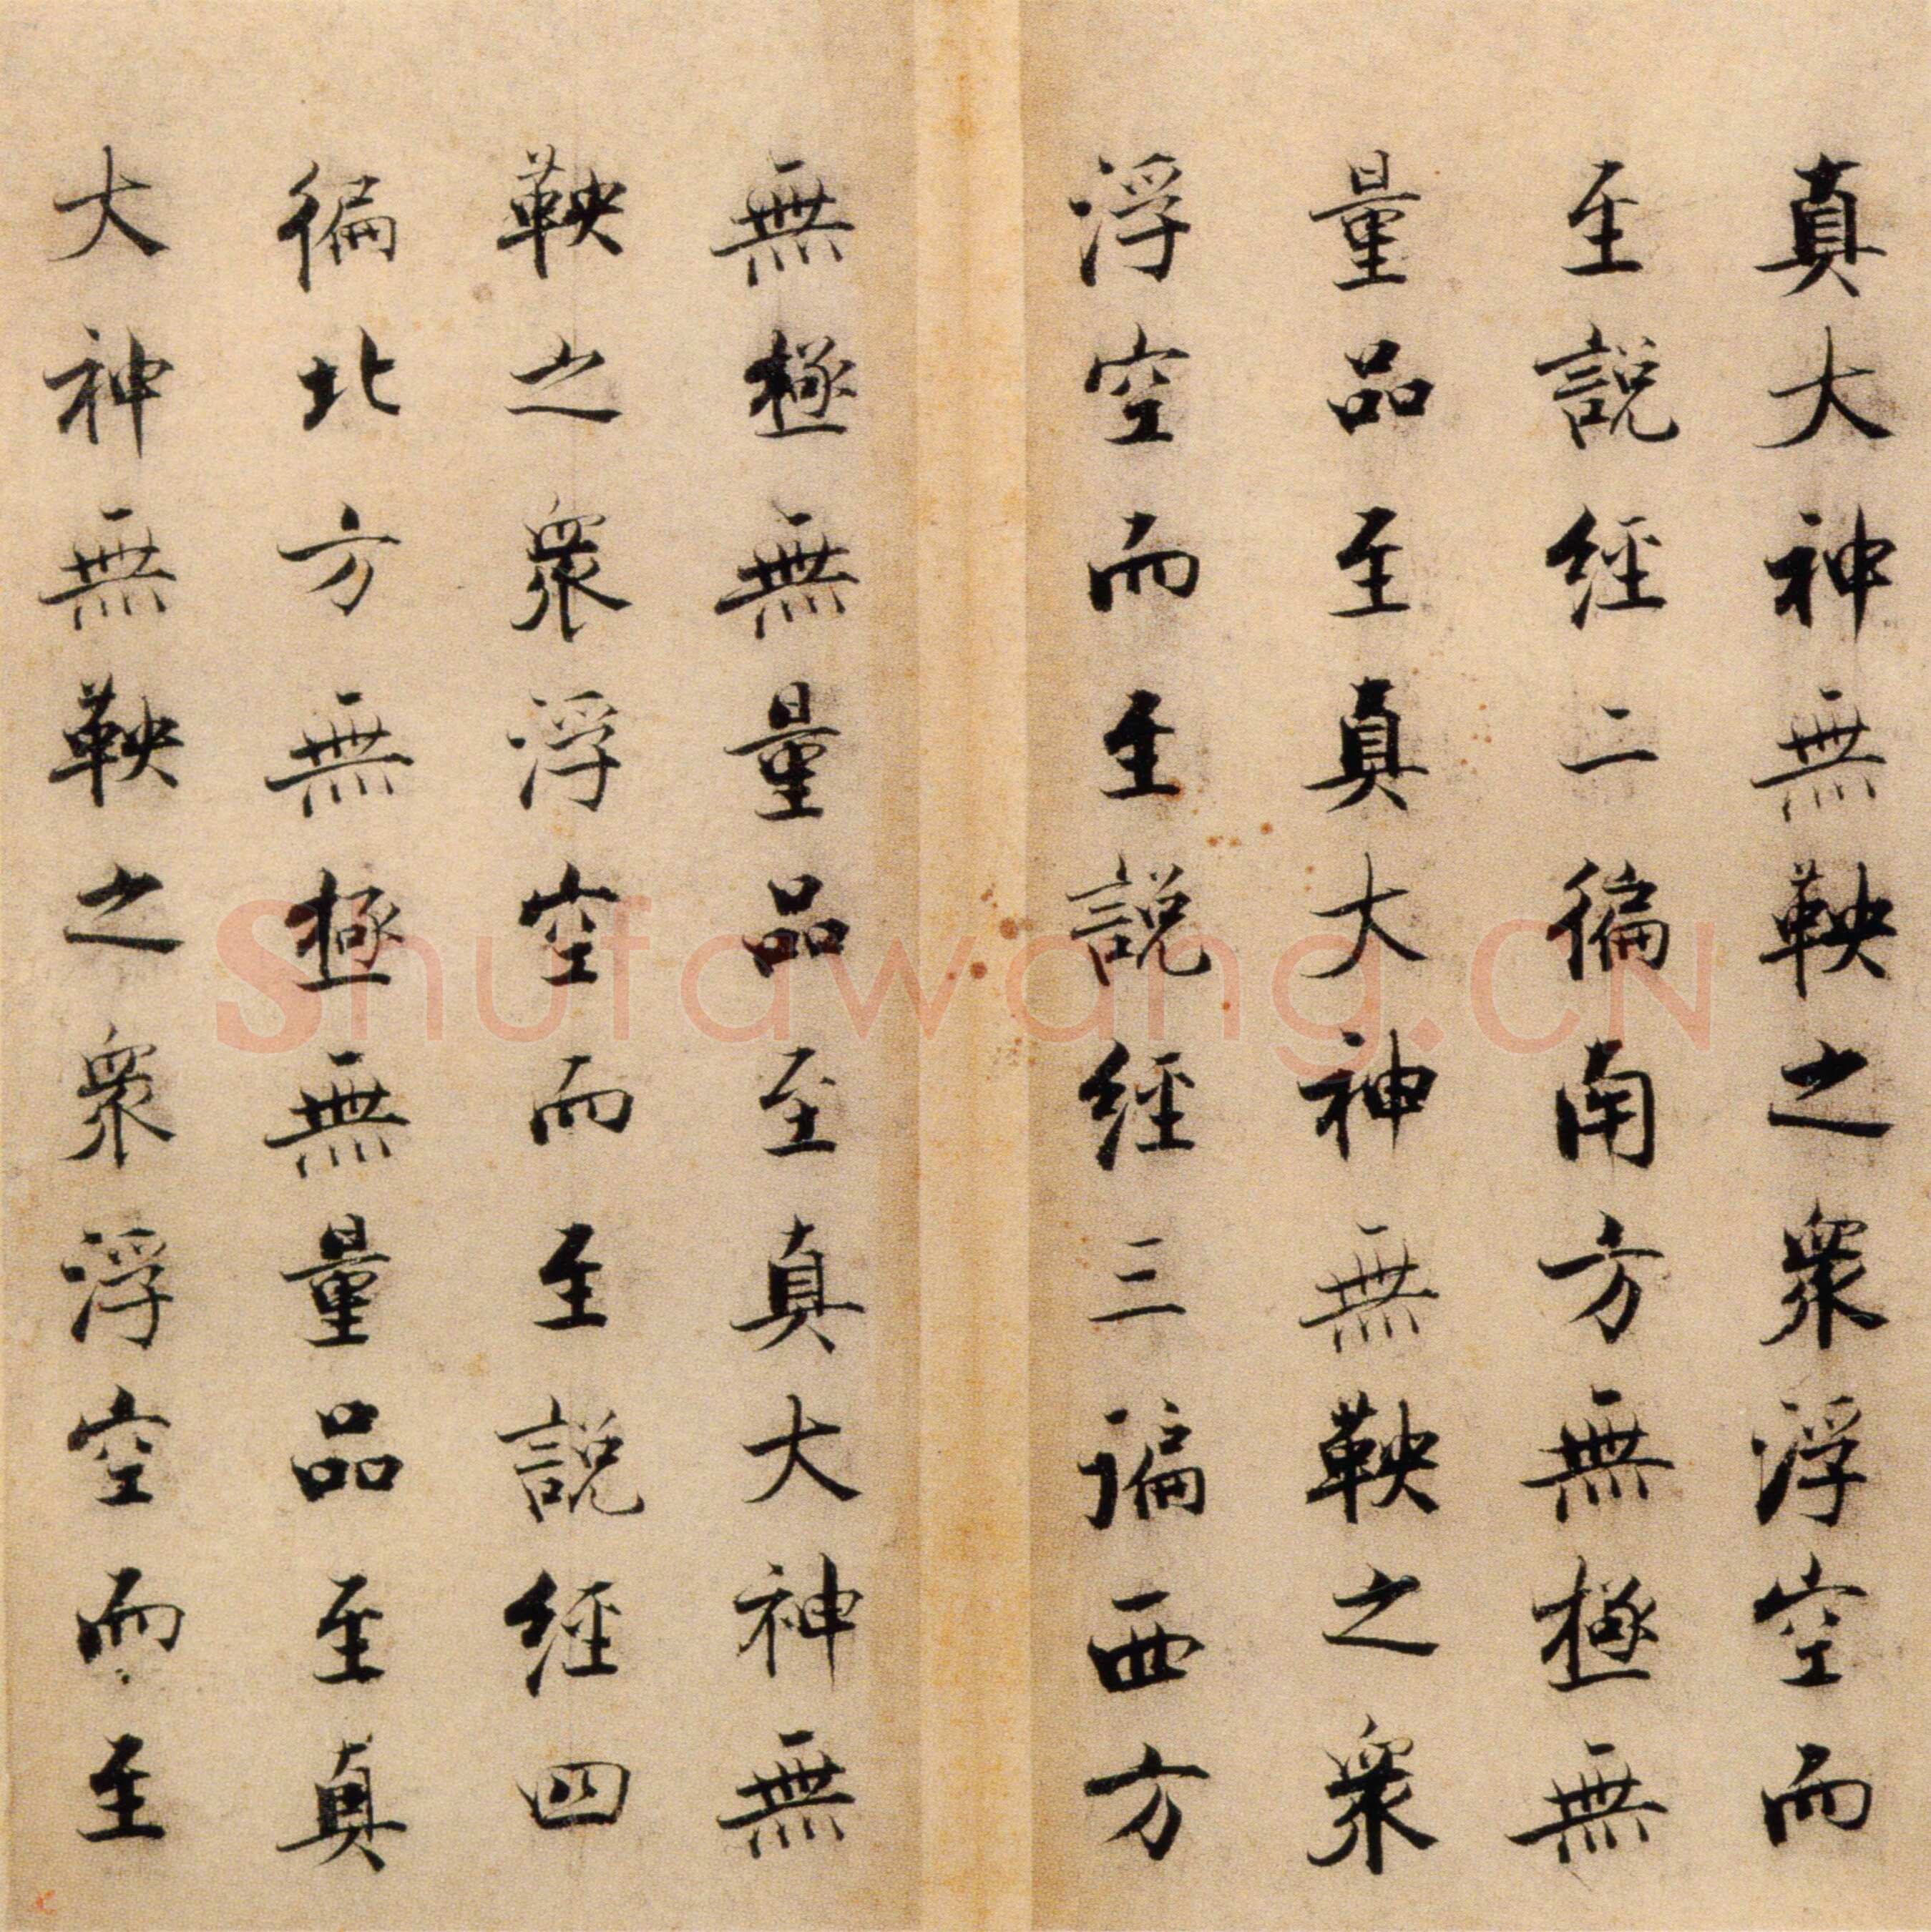 真大神無鞅之衆浮空而
至說經二徧南方無極無
量品至真大神無鞅之衆
浮空而至說經三遍西方
無極無量品至真大神無
鞅之衆浮空而至說經四
徧北方無極無量品至真
大神無鞅之衆浮空而至
Shufawang.CN